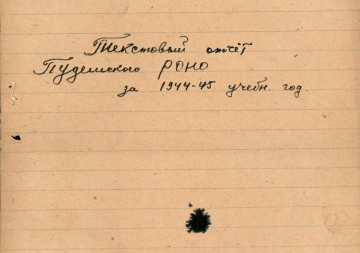 Текстовый отчёт
Пудемского РОНО
за 1944-45 учебн. год.